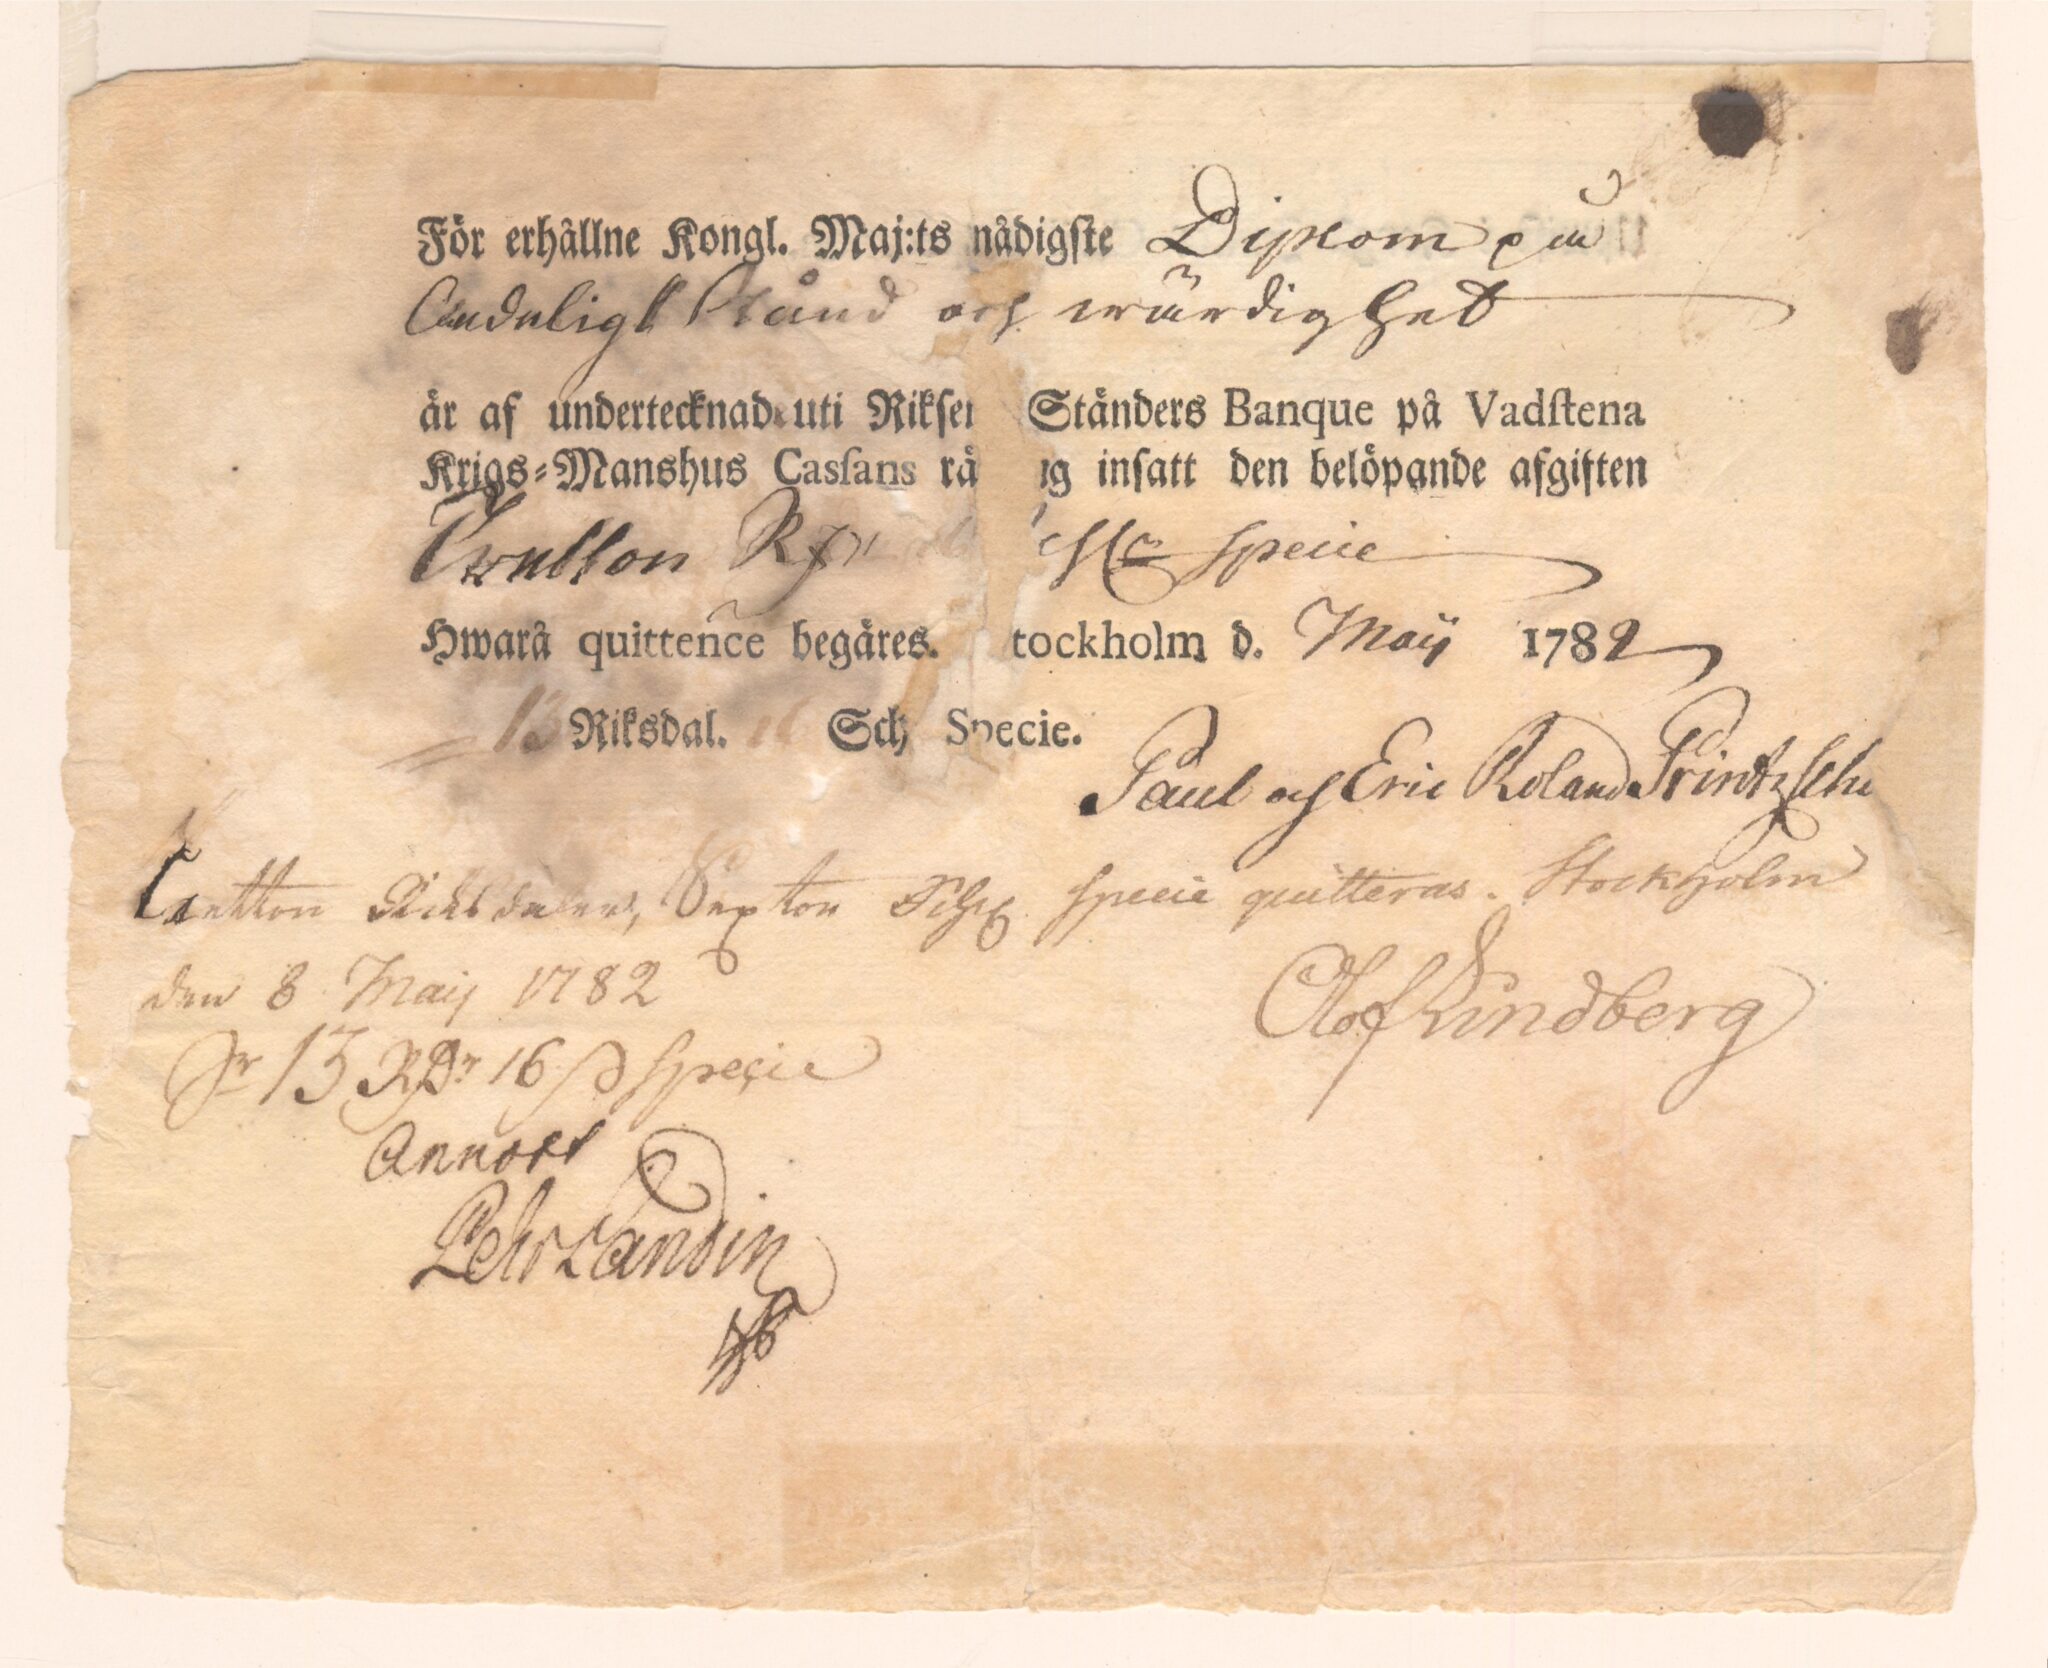 För erhållne Kongl. Maj:ts nådigste Diplom på
Adeligt Stånd och wärdighet
är af undertecknade uti Riksens Ständers Banque på Vadstena
Krigs-Manshus Cassans rä ng insatt den belöpande afgiften
Tretton Rd Specie
Hwarå quittence begäres. Stockholm d. Maij 1782
13 Riksdal. 16 Sch Specie.
Paul och Eric Roland Printzsche
Tretton Riksdaler, Sexton Schs Specie quitteras. Stockholm
den 8 Maij 1782
Olof Lindberg
Sr 13 RDr 16 ß Specie
Annoterat
Pehr Landin